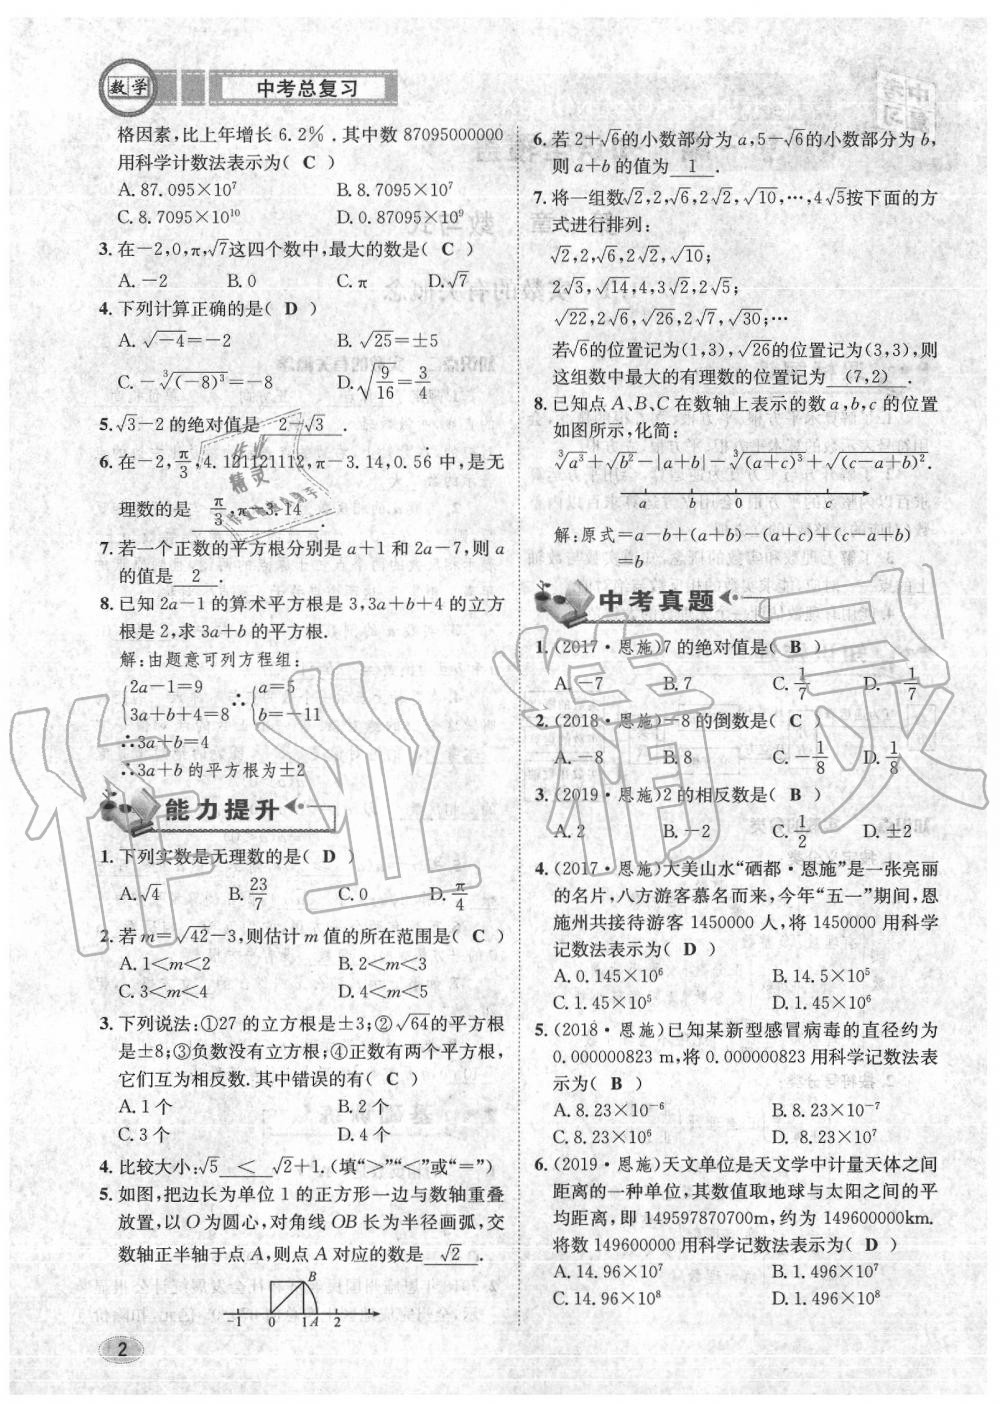 数学
中考总复习
格因素,比上年增长 6.2%.其中数 87095000000
用科学计数法表示为( C )
A. 87.095×10⁷ B. 8.7095×10⁷
C. 8.7095×10¹⁰ D. 0.87095×10⁹
3. 在－2,0,π,√7这四个数中,最大的数是( C )
A. －2 B. 0 C. π D. √7
4. 下列计算正确的是( D )
A. √－4＝－2 B. √25＝±5
C. －³√(－8)³＝－8 D. √9/16＝3/4
5. √3－2 的绝对值是 2－√3 .
6. 在－2,π/3,4.121121112,π－3.14,0.56̇ 中,是无
理数的是 π/3,π－3.14 .
7. 若一个正数的平方根分别是 a＋1 和 2a－7,则 a
的值是 2 .
8. 已知 2a－1 的算术平方根是 3,3a＋b＋4 的立方
根是 2,求 3a＋b 的平方根.
解:由题意可列方程组:
{2a－1＝9 ∴{a＝5
3a＋b＋4＝8 b＝－11
∴3a＋b＝4
∴3a＋b 的平方根为±2
能力提升
1. 下列实数是无理数的是( D )
A. √4 B. 23/7 C. 0 D. π/4
2. 若 m＝√42－3,则估计 m 值的所在范围是( C )
A. 1＜m＜2 B. 2＜m＜3
C. 3＜m＜4 D. 4＜m＜5
3. 下列说法:①27 的立方根是±3;②√64的平方根
是±8;③负数没有立方根;④正数有两个平方根,
它们互为相反数.其中错误的有( C )
A. 1 个 B. 2 个
C. 3 个 D. 4 个
4. 比较大小:√5 ＜ √2＋1.(填“＞”“＜”或“＝”)
5. 如图,把边长为单位 1 的正方形一边与数轴重叠
放置,以 O 为圆心,对角线 OB 长为半径画弧,交
数轴正半轴于点 A,则点 A 对应的数是 √2 .
B
－1 0 1 A 2
2
6. 若 2＋√6的小数部分为 a,5－√6的小数部分为 b,
则 a＋b 的值为 1 .
7. 将一组数√2,2,√6,2√2,√10,⋯,4√5按下面的方
式进行排列:
√2,2,√6,2√2,√10;
2√3,√14,4,3√2,2√5;
√22,2√6,√26,2√7,√30;⋯
若√6的位置记为(1,3),√26的位置记为(3,3),则
这组数中最大的有理数的位置记为 (7,2) .
8. 已知点 A、B、C 在数轴上表示的数 a,b,c 的位置
如图所示,化简:
³√a³＋√b²－|a＋b|－³√(a＋c)³＋√(c－a＋b)².
a b 0 c
解:原式＝a－b＋(a＋b)－(a＋c)＋(c－a＋b)
＝b
中考真题
1. (2017·恩施)7 的绝对值是( B )
A. －7 B. 7 C. 1/7 D. －1/7
2. (2018·恩施)－8 的倒数是( C )
A. －8 B. 8 C. －1/8 D. 1/8
3. (2019·恩施)2 的相反数是( B )
A. 2 B. －2 C. 1/2 D. ±2
4. (2017·恩施)大美山水“硒都·恩施”是一张亮丽
的名片,八方游客慕名而来,今年“五一”期间,恩
施州共接待游客 1450000 人,将 1450000 用科学
记数法表示为( D )
A. 0.145×10⁶ B. 14.5×10⁵
C. 1.45×10⁵ D. 1.45×10⁶
5. (2018·恩施)已知某新型感冒病毒的直径约为
0.000000823 m,将 0.000000823 用科学记数法表
示为( B )
A. 8.23×10⁻⁶ B. 8.23×10⁻⁷
C. 8.23×10⁶ D. 8.23×10⁷
6. (2019·恩施)天文单位是天文学中计量天体之间
距离的一种单位,其数值取地球与太阳之间的平
均距离,即 149597870700m,约为 149600000km.
将数 149600000 用科学记数法表示为( D )
A. 14.96×10⁷ B. 1.496×10⁷
C. 14.96×10⁸ D. 1.496×10⁸
作业精灵